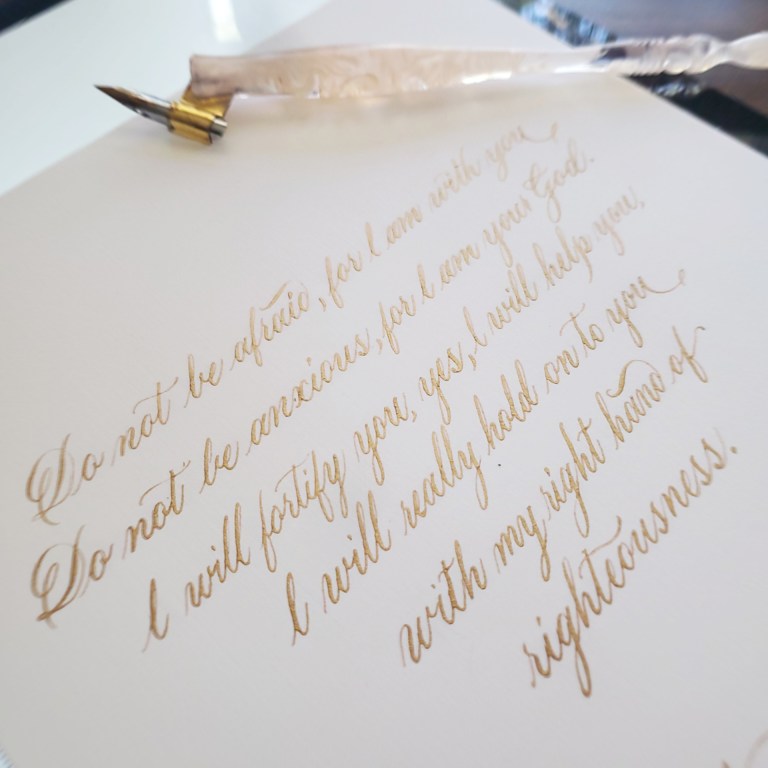 Do not be afraid, for I am with you
Do not be anxious, for I am your God.
I will fortify you, yes, I will help you.
I will really hold on to you
with my right hand of
righteousness.